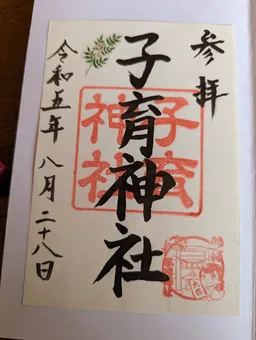 参拝
子育神社
子育
神社
令和五年 八月二十八日